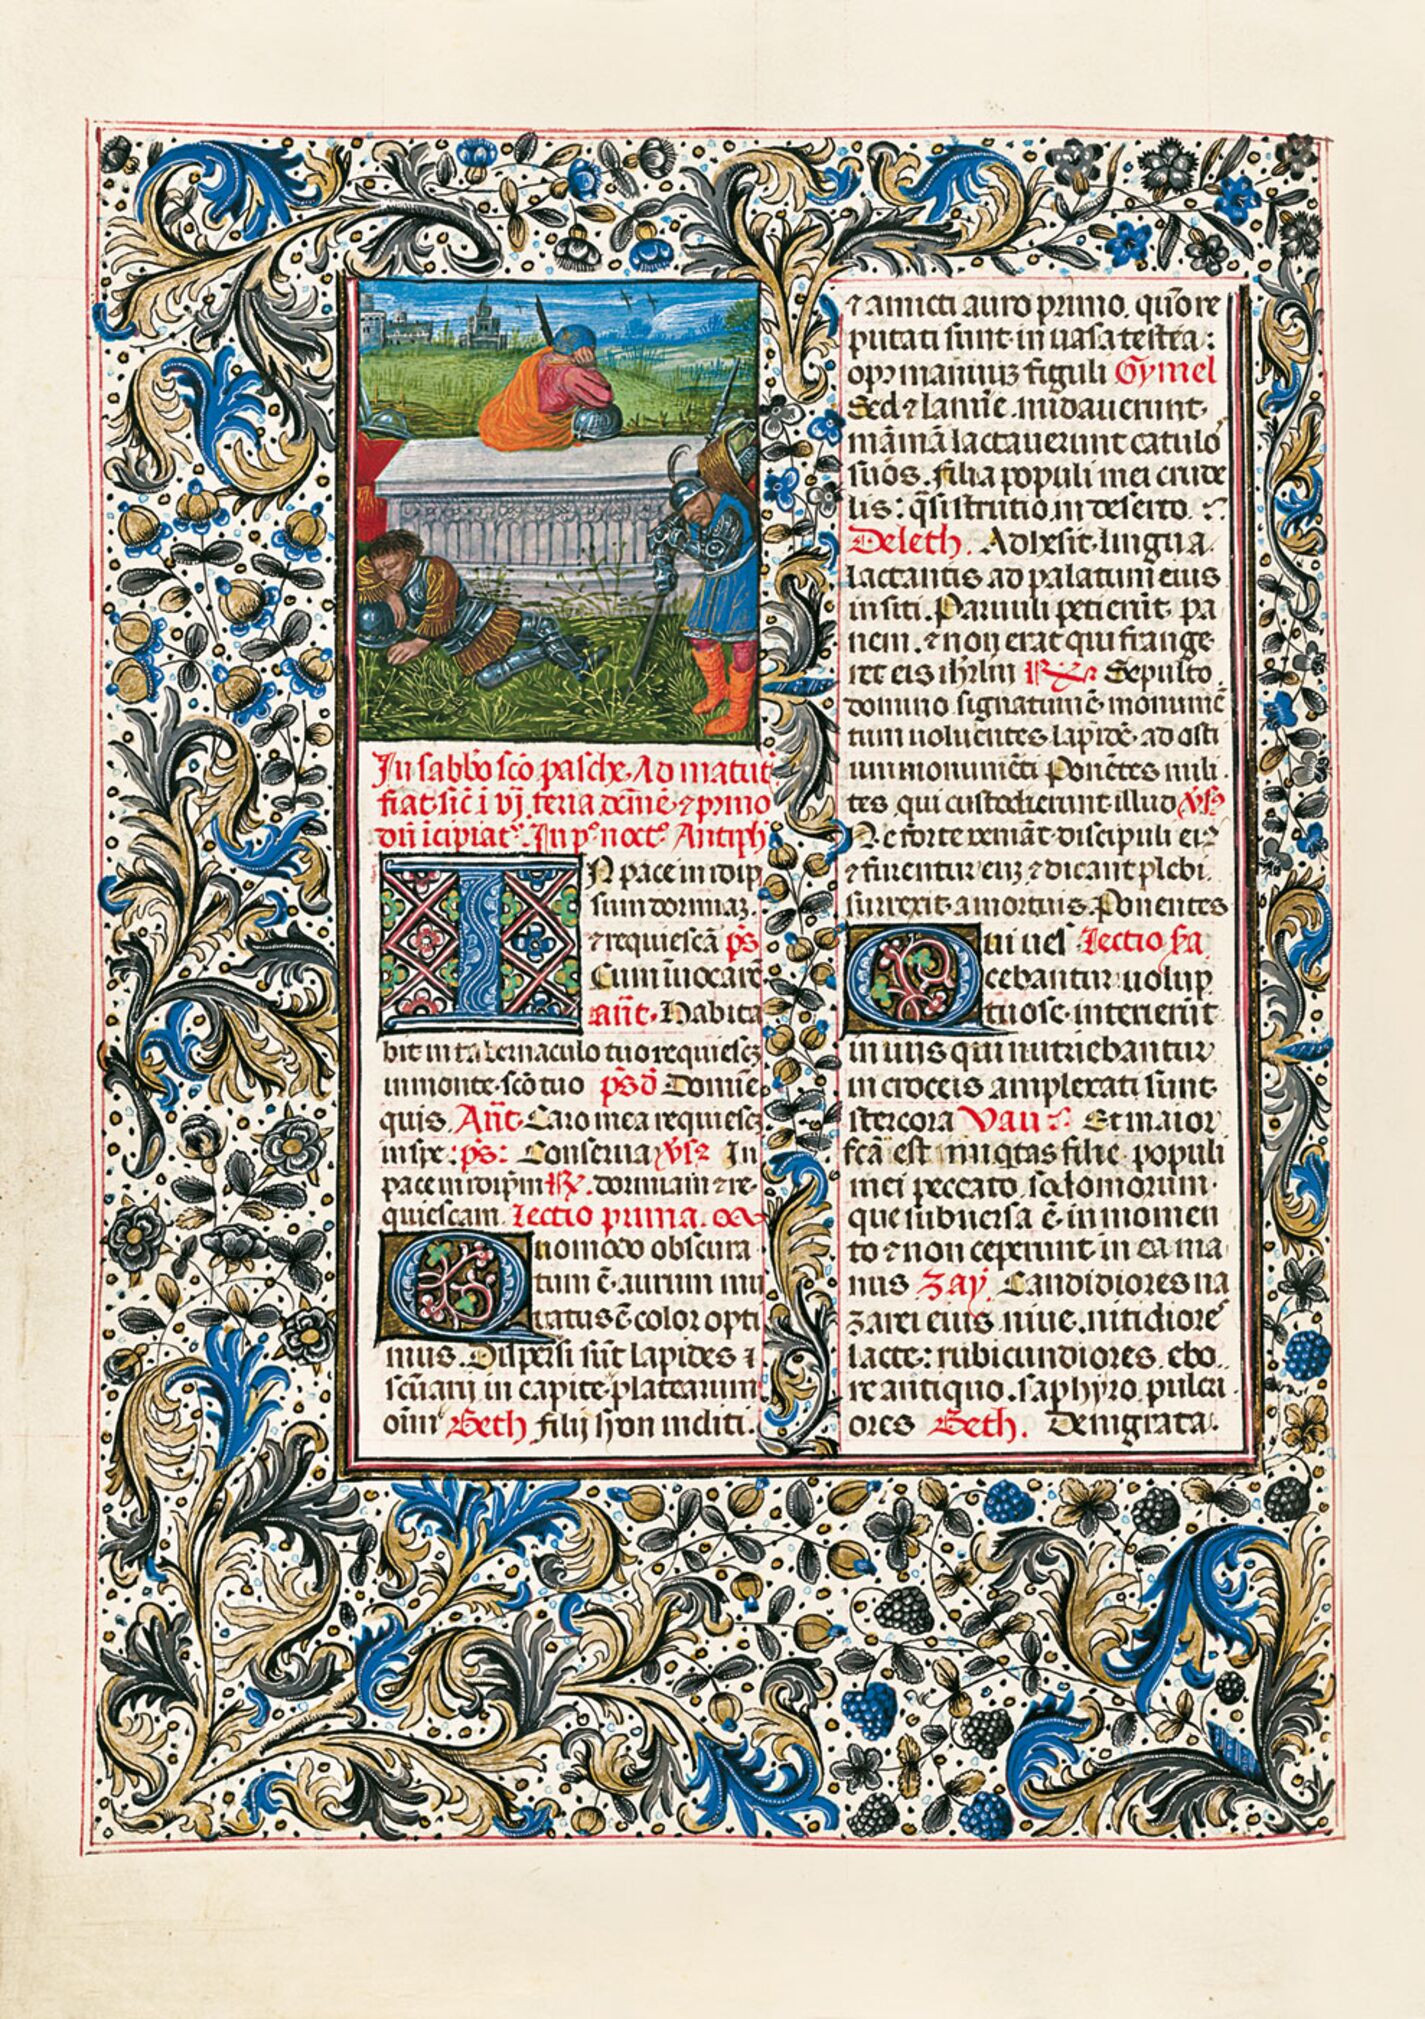 In sabb̄o scō pasche. Ad matut̄
fiat sic̄ ī vj feria dēme. ⁊ primo
dn̄ īcipiat᷑. In pº nocto Antiph
IN pace in idip
sum dormiaꝫ.
⁊ requiescā ps̄
Cum īuocarē
an̄t. Habita
bit in tabernaculo tuo requiescꝫ
in monte scō tuo ps̄ d̄ Domīe
quis An̄t Caro mea requiescꝫ
in spe: ps̄: Conserua v̄sꝫ In
pace in idip̄m ℞. dormiam ⁊ re-
quiescam. Lectio prima.
Quomodo obscura
tum ē aurum mu
tatus ē color opti
mus. Dispersi sūt lapides ⁊
scūarij in capite platearum
oīm Beth filij syon incliti.
⁊ amicti auro primo. quōre
putati sunt in uasa testea:
opꝫ manuuꝫ figuli Gymel
Sed ⁊ lamie nudauerunt
māmā lactauerunt catulo
suōs. filia populi mei crude
lis: qsi strutio in deserto.
Deleth. Adhesit lingua
lactantis ad palatum eius
in siti. Paruuli petierūt pa
nem. ⁊ non erat qui frange
ret eis ihrlm ℞ Sepulto
domino signatum ē monumē
tum uoluentes lapidē ad osti
um monumēti Ponētes mili
tes qui custodierunt illud v̄sꝫ
Ne forte ueniāt discipuli eiꝫ
⁊ furentur euꝫ ⁊ dicant plebi.
surrexit a mortuis. Ponentes
Qui ues Lectio s̄a
cebantur uolup
tuose interierūt
in uiis qui nutriebantur
in croceis amplexati sunt
stercora Vau Et maior
fcā est iniqtas filie populi
mei peccato sodomorum
que subuersa ē in momen
to ⁊ non ceperunt in ea ma
nus Zay. Candidiores na
zarei eius niue. nitidiore
lacte: rubicundiores ebo
re antiquo. saphyro pulcri
ores Heth. Denigrata